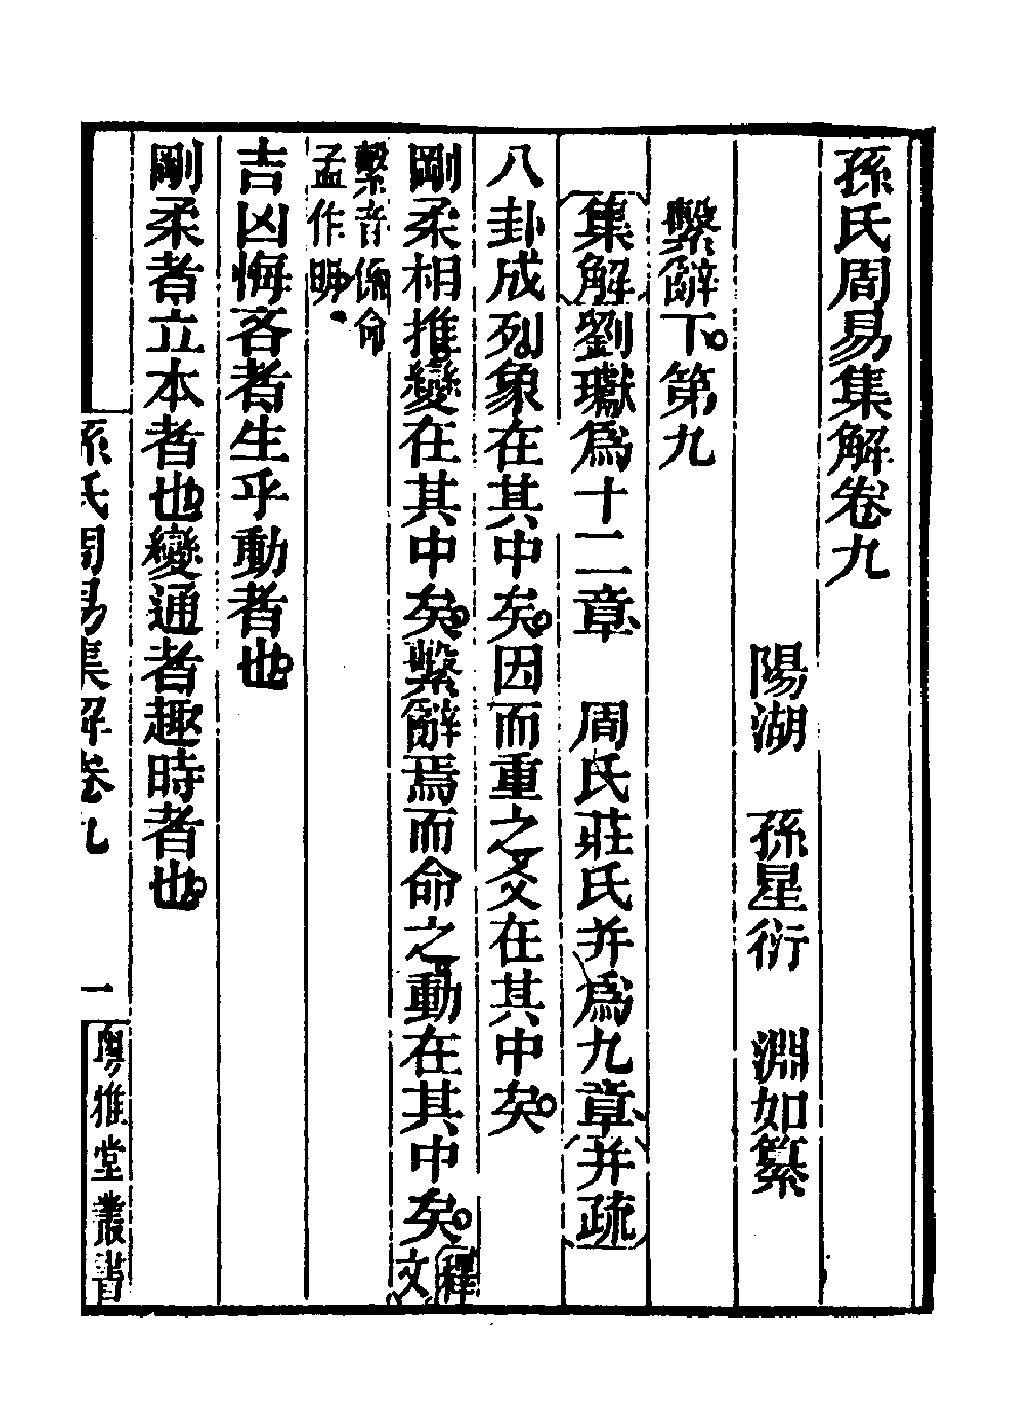 孫氏周易集解卷九
陽湖 孫星衍 淵如纂
繫辭下第九
集解劉瓛爲十二章 周氏莊氏并爲九章并疏
八卦成列象在其中矣因而重之爻在其中矣
剛柔相推變在其中矣繫辭焉而命之動在其中矣釋文
繫音係命
孟作明
吉凶悔吝者生乎動者也
剛柔者立本者也變通者趣時者也
孫氏周易集解卷九 一 粵雅堂叢書